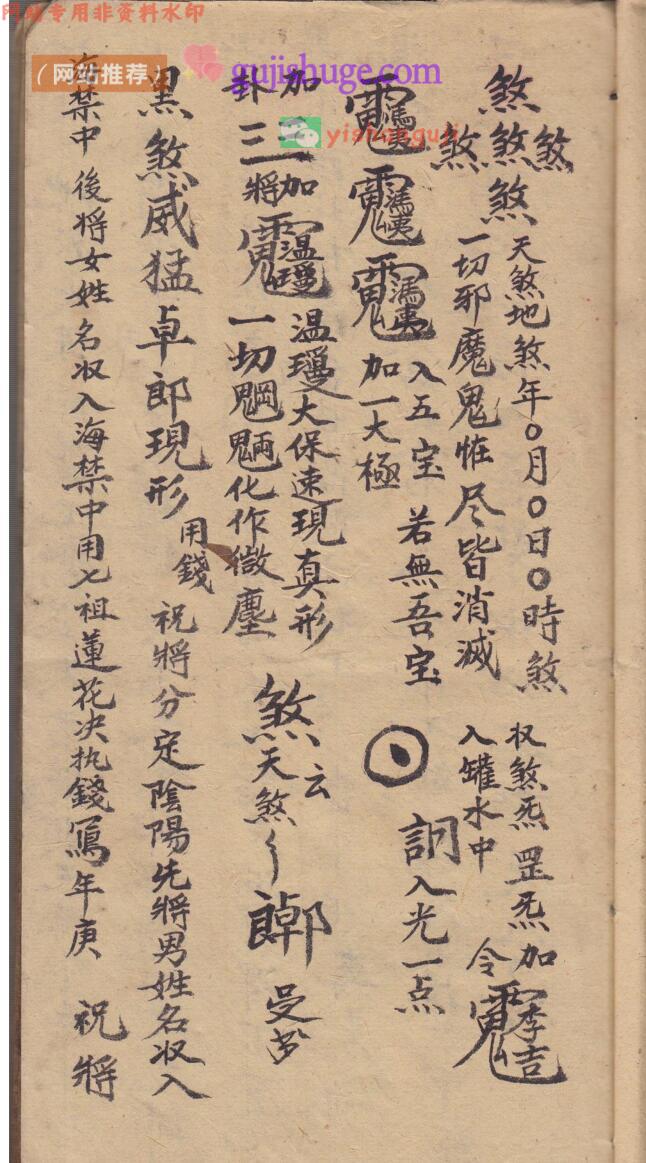 网站专用非资料水印
（网站推荐）
gujishuge.com
yishanguji
煞
煞煞煞
煞
天煞地煞年〇月〇日〇時煞
一切邪魔鬼怪尽皆消滅
收煞炁罡炁加
入罐水中
令
李吉
馮夷
馮夷
馮夷
入五宝
加一大極
若無吾宝
入光一点
加三加
卦三將
温瓊
温瓊大保速現真形
一切魍魎化作微塵
煞云
天煞
黑煞威猛卓郎現形
用錢
祝將分定陰陽先將男姓名收入
海禁中後將女姓名収入海禁中用七祖蓮花决执錢寫年庚
祝將